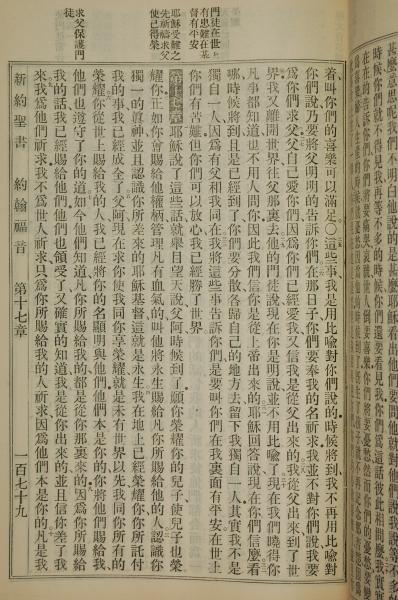 甚麼意思呢我們不明白他說的是甚麼耶穌看出他們要問他就對他們說我說等不多的
時候你們就不得見我再等不多的時候你們還要看見我你們爲這話彼此相問麼我實實
在在的告訴你們你們將要痛哭哀號世人倒要喜樂你們將要憂愁然而你們的憂愁要變
着叫你們的喜樂可以滿足○這些事我是用比喻對你們說的時候將到我不再用比喻對
你們說乃要將父明明的告訴你們在那日子你們要奉我的名祈求我並不對你們說我要
爲你們求父父自己愛你們因爲你們已經愛我又信我是從父出來的我從父出來到了世
界我又離開世界往父那裏去他的門徒說現在你是明說並不用比喻了現在我們曉得你
凡事都知道也不用人問你因此我們信你是從上帝出來的耶穌回答說現在你們信麼看
哪時候將到且是已經到了你們要分散各歸自己的地方去留下我獨自一人其實我不是
獨自一人因爲有父和我同在我將這些事告訴你們是要叫你們在我裏面有平安在世上
你們有苦難但你們可以放心我已經勝了世界
第十七章耶穌說了這些話就舉目望天說父阿時候到了願你榮耀你的兒子使兒子也榮
耀你正如你曾賜給他權柄管理凡有血氣的叫他將永生賜給凡你所賜給他的人認識你
獨一的眞神並且認識你所差來的耶穌基督這就是永生我在地上已經榮耀你你所託付
我的事我已經成全了父阿現在求你使我同你享榮耀就是未有世界以先我同你所有的
榮耀你從世上賜給我的人我已經將你的名顯明與他們他們本是你的你將他們賜給我
他們也遵守了你的道如今他們知道凡你所賜給我的都是從你那裏來的因爲你所賜給
我的話我已經賜給他們他們也領受了又確實的知道我是從你出來的並且信你差了我
來我爲他們祈求我不爲世人祈求只爲你所賜給我的人祈求因爲他們本是你的凡是我
門徒在世上
有患難在基
督有平安
耶穌受難之
先祈禱求父
使己得榮
求父保護門
徒
新約聖書 約翰福音 第十七章 一百七十九